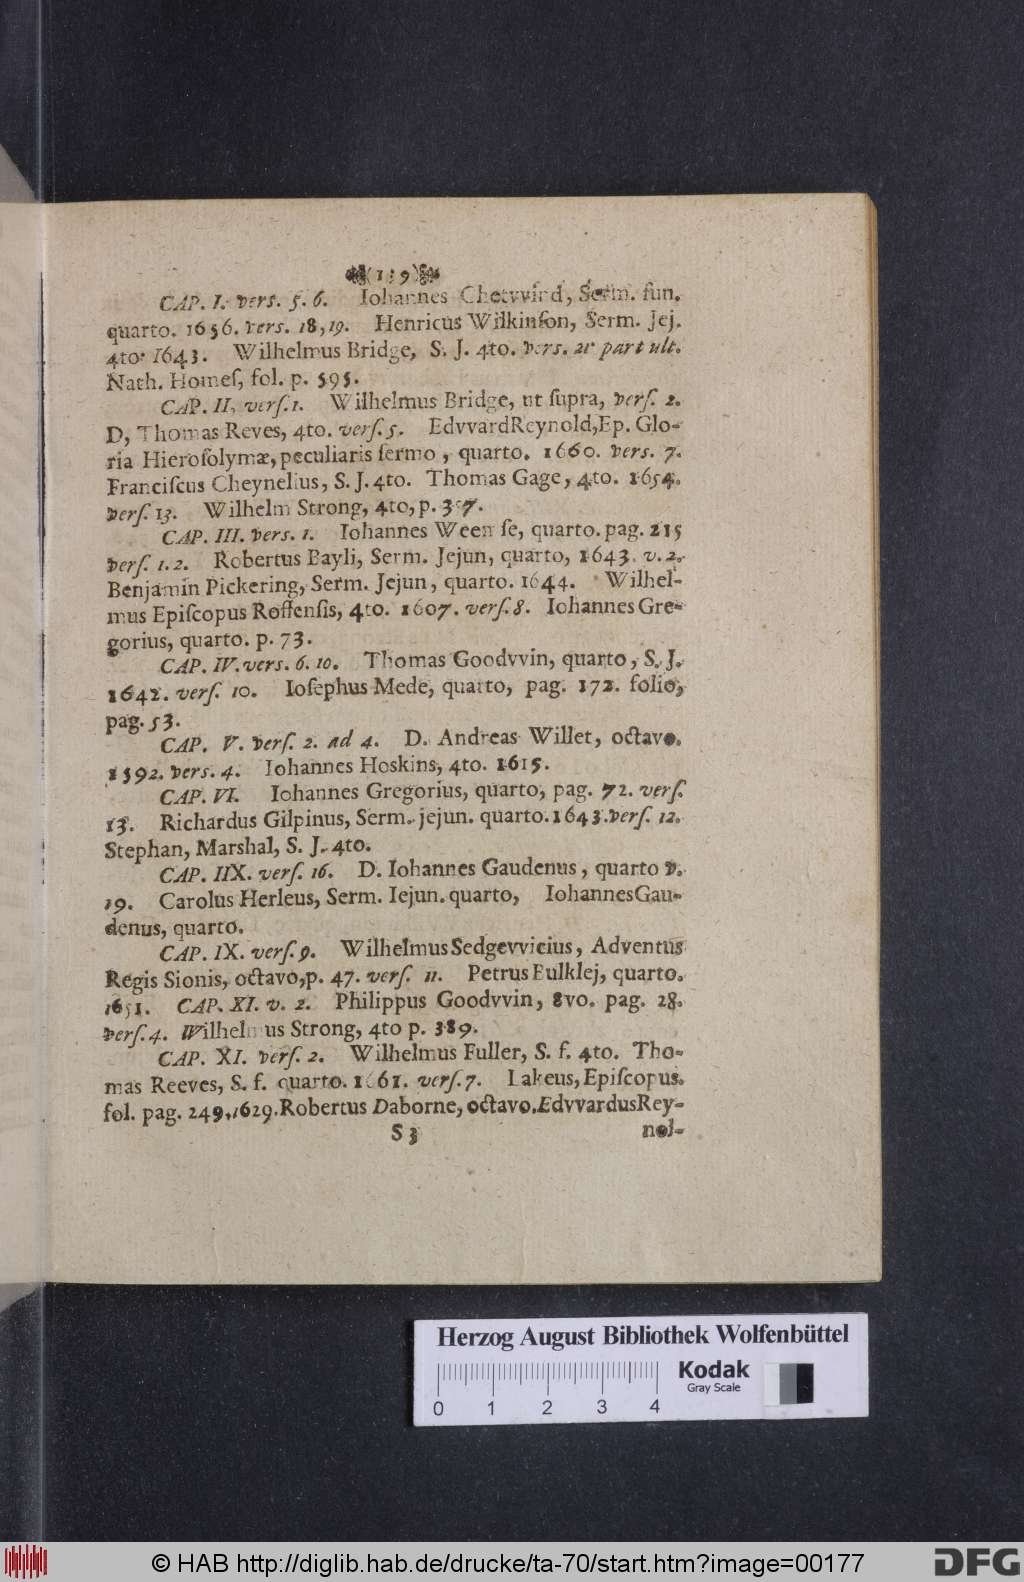 CAP. I. vers. 5. 6. Iohannes Chetvvind, Serm. fun.
quarto. 1656. vers. 18, 19. Henricus Wilkinſon, Serm. Jej.
4to. 1643. Wilhelmus Bridge, S. J. 4to. vers. 21 part ult.
Nath. Homeſ, fol. p. 595.
CAP. II, verſ. 1. Wilhelmus Bridge, ut ſupra, verſ. 2.
D, Thomas Reves, 4to. verſ. 5. EdvvardReynold, Ep. Glo-
ria Hieroſolymæ, peculiaris ſermo, quarto. 1660. vers. 7.
Franciſcus Cheynelius, S. J. 4to. Thomas Gage, 4to. 1654.
verſ. 13. Wilhelm Strong, 4to, p.
CAP. III. vers. 1. Iohannes ſe, quarto. pag. 215
verſ. 1. 2. Robertus Bayli, Serm. Jejun, quarto, 1643. v. 2.
Benjamin Pickering, Serm. Jejun, quarto. 1644. Wilhel-
mus Epiſcopus Roffenſis, 4to. 1607. verſ. 8. Iohannes Gre-
gorius, quarto. p. 73.
CAP. IV. vers. 6. 10. Thomas Goodvvin, quarto, S. J.
1642. verſ. 10. Ioſephus Mede, quarto, pag. 172. folio,
pag. 53.
CAP. V. verſ. 2. ad 4. D. Andreas Willet, octavo.
1592. vers. 4. Iohannes Hoskins, 4to. 1615.
CAP. VI. Iohannes Gregorius, quarto, pag. 72. verſ.
13. Richardus Gilpinus, Serm. jejun. quarto. 1643. verſ. 12.
Stephan, Marshal, S. J. 4to.
CAP. IIX. verſ. 16. D. Iohannes Gaudenus, quarto v.
19. Carolus Herleus, Serm. Iejun. quarto, IohannesGau-
denus, quarto.
CAP. IX. verſ. 9. Wilhelmus Sedgevvicius, Adventus
Regis Sionis, octavo, p. 47. verſ. 11. Petrus Bulklej, quarto.
1651. CAP. XI. v. 2. Philippus Goodvvin, 8vo. pag. 28.
verſ. 4. Wilhelmus Strong, 4to p. 389.
CAP. XI. verſ. 2. Wilhelmus Fuller, S. f. 4to. Tho-
mas Reeves, S. f. quarto. 1661. verſ. 7. Lakeus, Epiſcopus.
fol. pag. 249, 1629. Robertus Daborne, octavo. EdvvardusRey-
S 3 nol-
Herzog August Bibliothek Wolfenbüttel
Kodak
Gray Scale
0 1 2 3 4
© HAB http://diglib.hab.de/drucke/ta-70/start.htm?image=00177
DFG